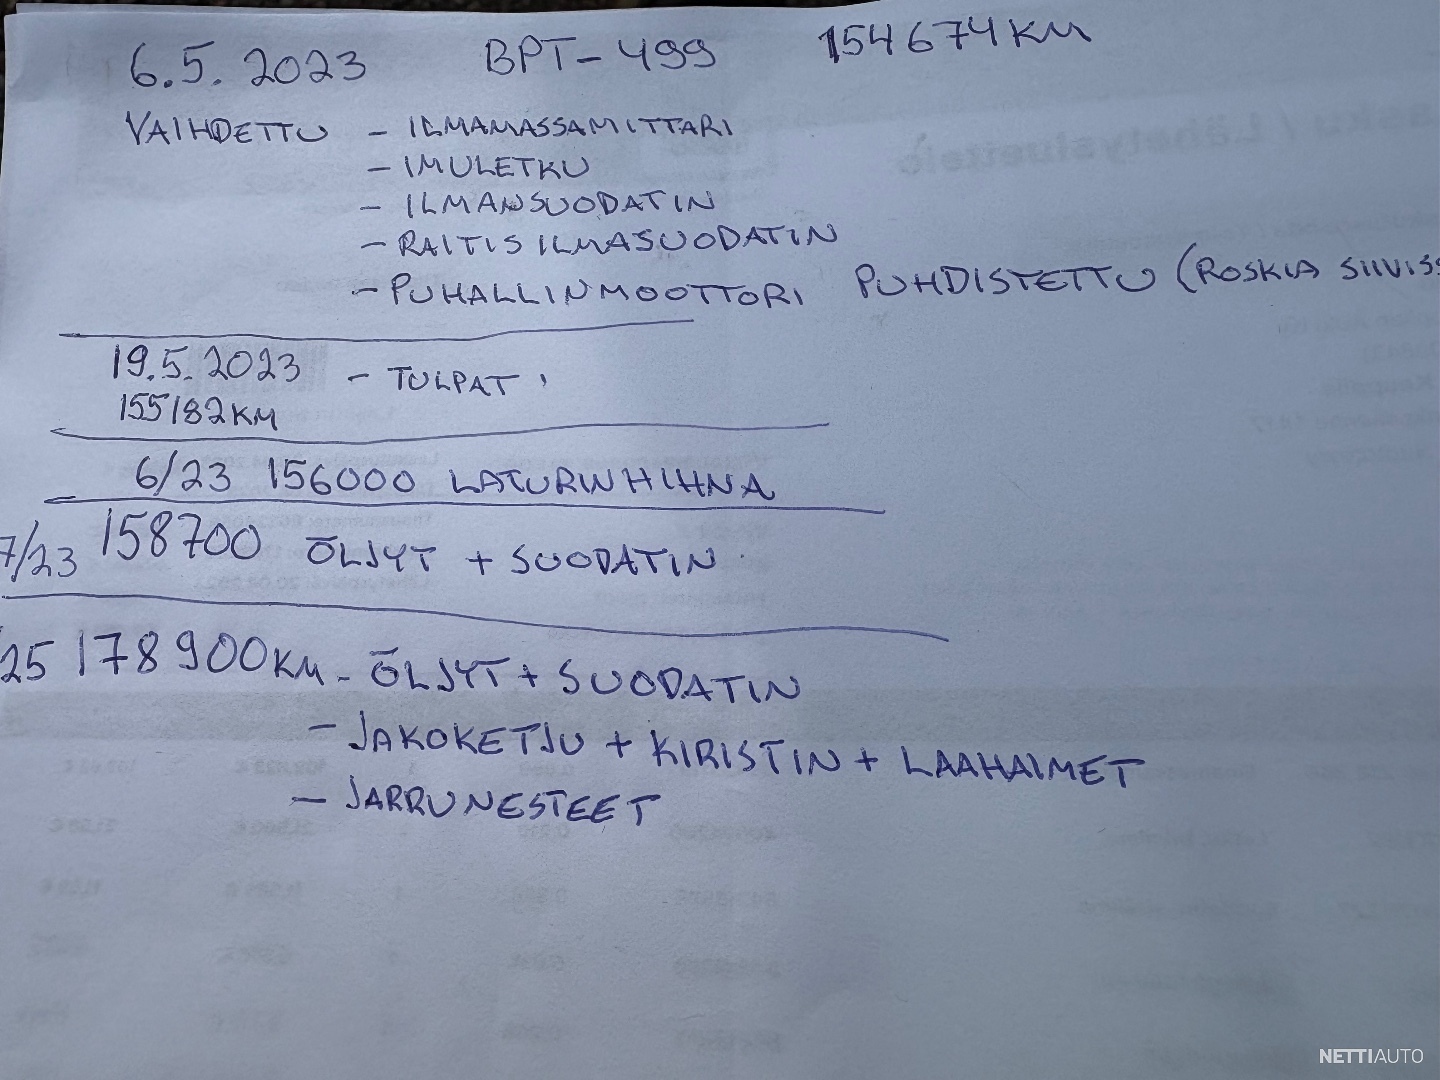 6.5. 2023 BPT-499 154674KM
VAIHDETTU - ILMAMASSAMITTARI
- IMULETKU
- ILMANSUODATIN
- RAITIS ILMASUODATIN
- PUHALLINMOOTTORI PUHDISTETTU (ROSKIA SIIVISS
19.5.2023 - TULPAT
155182KM
6/23 156000 LATURINHIHNA
7/23 158700 ÖLJYT + SUODATIN
/25 178900KM - ÖLJYT + SUODATIN
- JAKOKETJU + KIRISTIN + LAAHAIMET
- JARRUNESTEET
NETTIAUTO